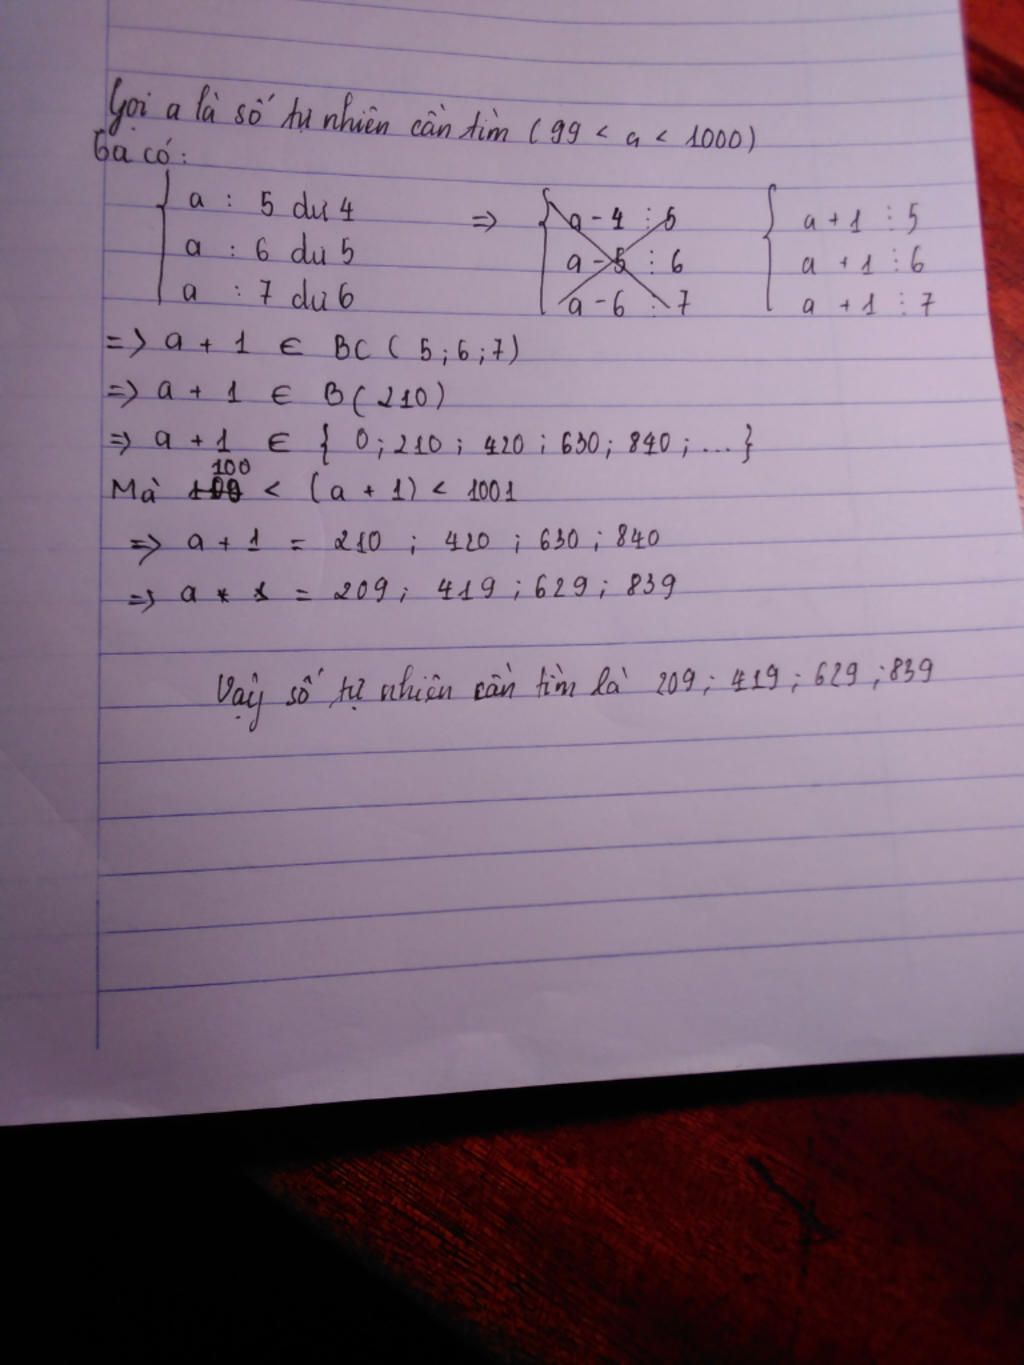 Gọi a là số tự nhiên cần tìm (99 < a < 1000)
Ta có:
{ a : 5 dư 4 => { a - 4 ⋮ 5 { a + 1 ⋮ 5
a : 6 dư 5 a - 5 ⋮ 6 a + 1 ⋮ 6
a : 7 dư 6 a - 6 ⋮ 7 a + 1 ⋮ 7
=> a + 1 ∈ BC ( 5 ; 6 ; 7 )
=> a + 1 ∈ B ( 210 )
=> a + 1 ∈ { 0 ; 210 ; 420 ; 630 ; 840 ; ... }
Mà 100 < (a + 1) < 1001
=> a + 1 = 210 ; 420 ; 630 ; 840
=> a = 209 ; 419 ; 629 ; 839
Vậy số tự nhiên cần tìm là 209 ; 419 ; 629 ; 839